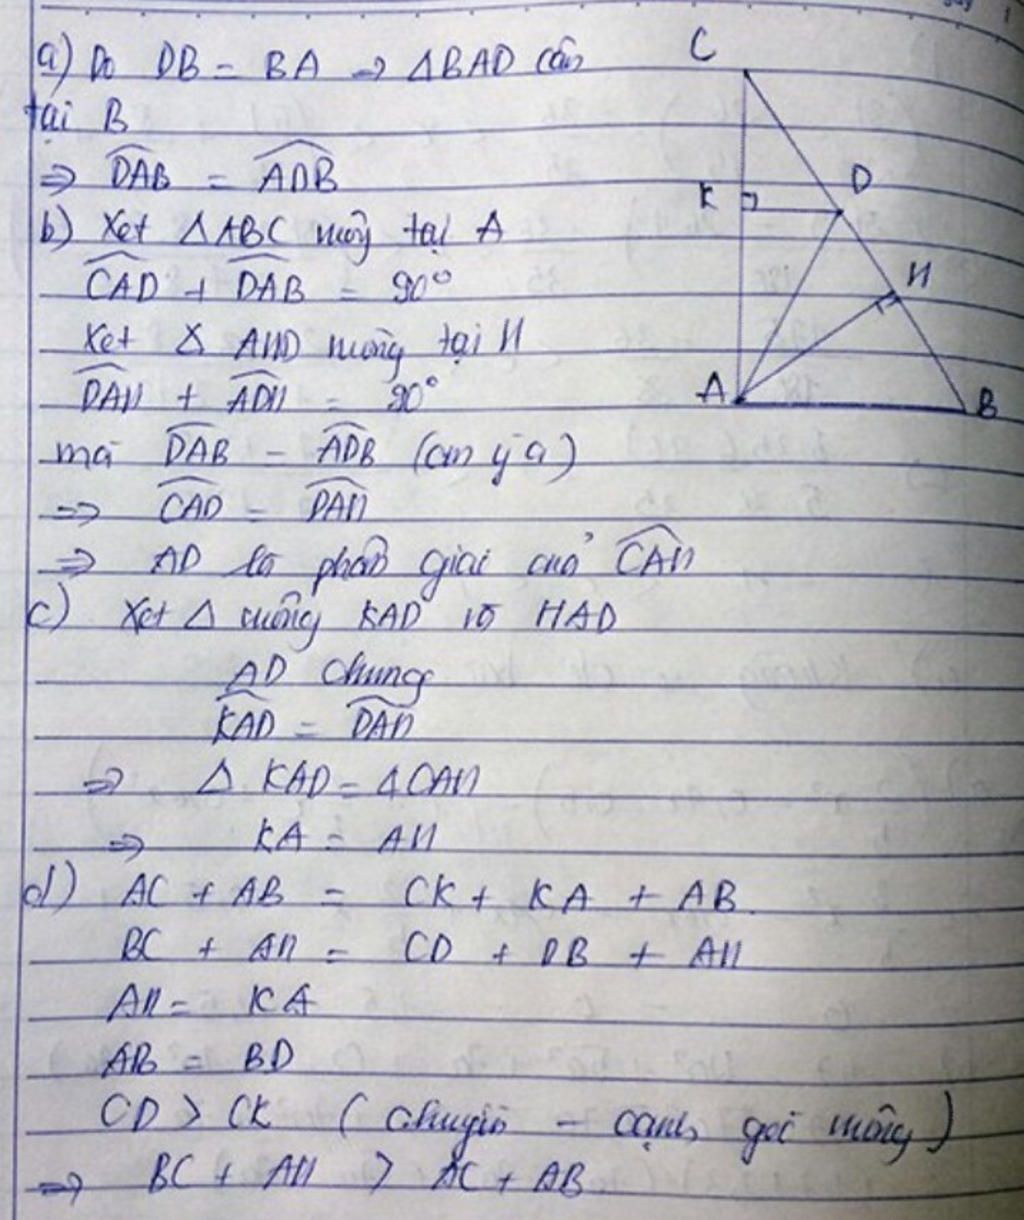 a) Do DB = BA → ΔBAD cân
tại B
⇒ \widehat{DAB} = \widehat{ADB}
b) Xét ΔABC vuông tại A
\widehat{CAD} + \widehat{DAB} = 90°
Xét Δ AHD vuông tại H
\widehat{DAH} + \widehat{ADH} = 90°
mà \widehat{DAB} = \widehat{ADB} (cm ý a)
⇒ \widehat{CAD} = \widehat{DAH}
⇒ AD là phân giác của \widehat{CAH}
c) Xét Δ vuông KAD và HAD
AD chung
\widehat{KAD} = \widehat{DAH}
⇒ Δ KAD = Δ CAH
⇒ KA = AH
d) AC + AB = CK + KA + AB.
BC + AH = CD + DB + AH
AH = KA
AB = BD
CD > CK (chuyền - cạnh góc vuông)
⇒ BC + AH > AC + AB
C
D
K
H
A
B